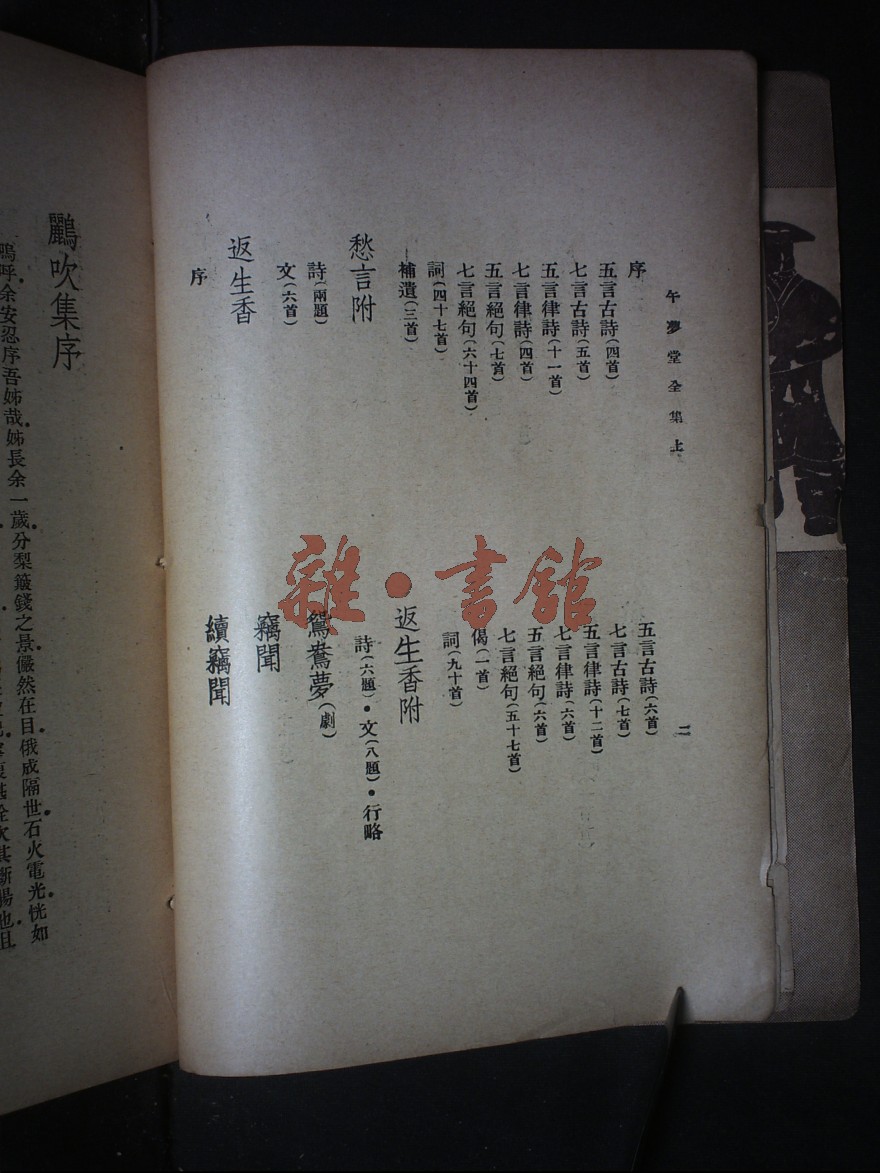 午夢堂全集上
二
序
五言古詩(四首)
七言古詩(五首)
五言律詩(十一首)
七言律詩(四首)
五言絕句(七首)
七言絕句(六十四首)
詞(四十七首)
補遺(三首)
愁言附
詩(兩題)
文(六首)
返生香
序
五言古詩(六首)
七言古詩(七首)
五言律詩(十二首)
七言律詩(六首)
五言絕句(六首)
七言絕句(五十七首)
偈(一首)
詞(九十首)
返生香附
詩(六題)•文(八題)•行略
鴛鴦夢(劇)
竊聞
續竊聞
鸝吹集序
嗚呼余安忍序吾姊哉姊長余一歲分梨簸錢之景儼然在目俄成隔世石火電光恍如
雜•書館